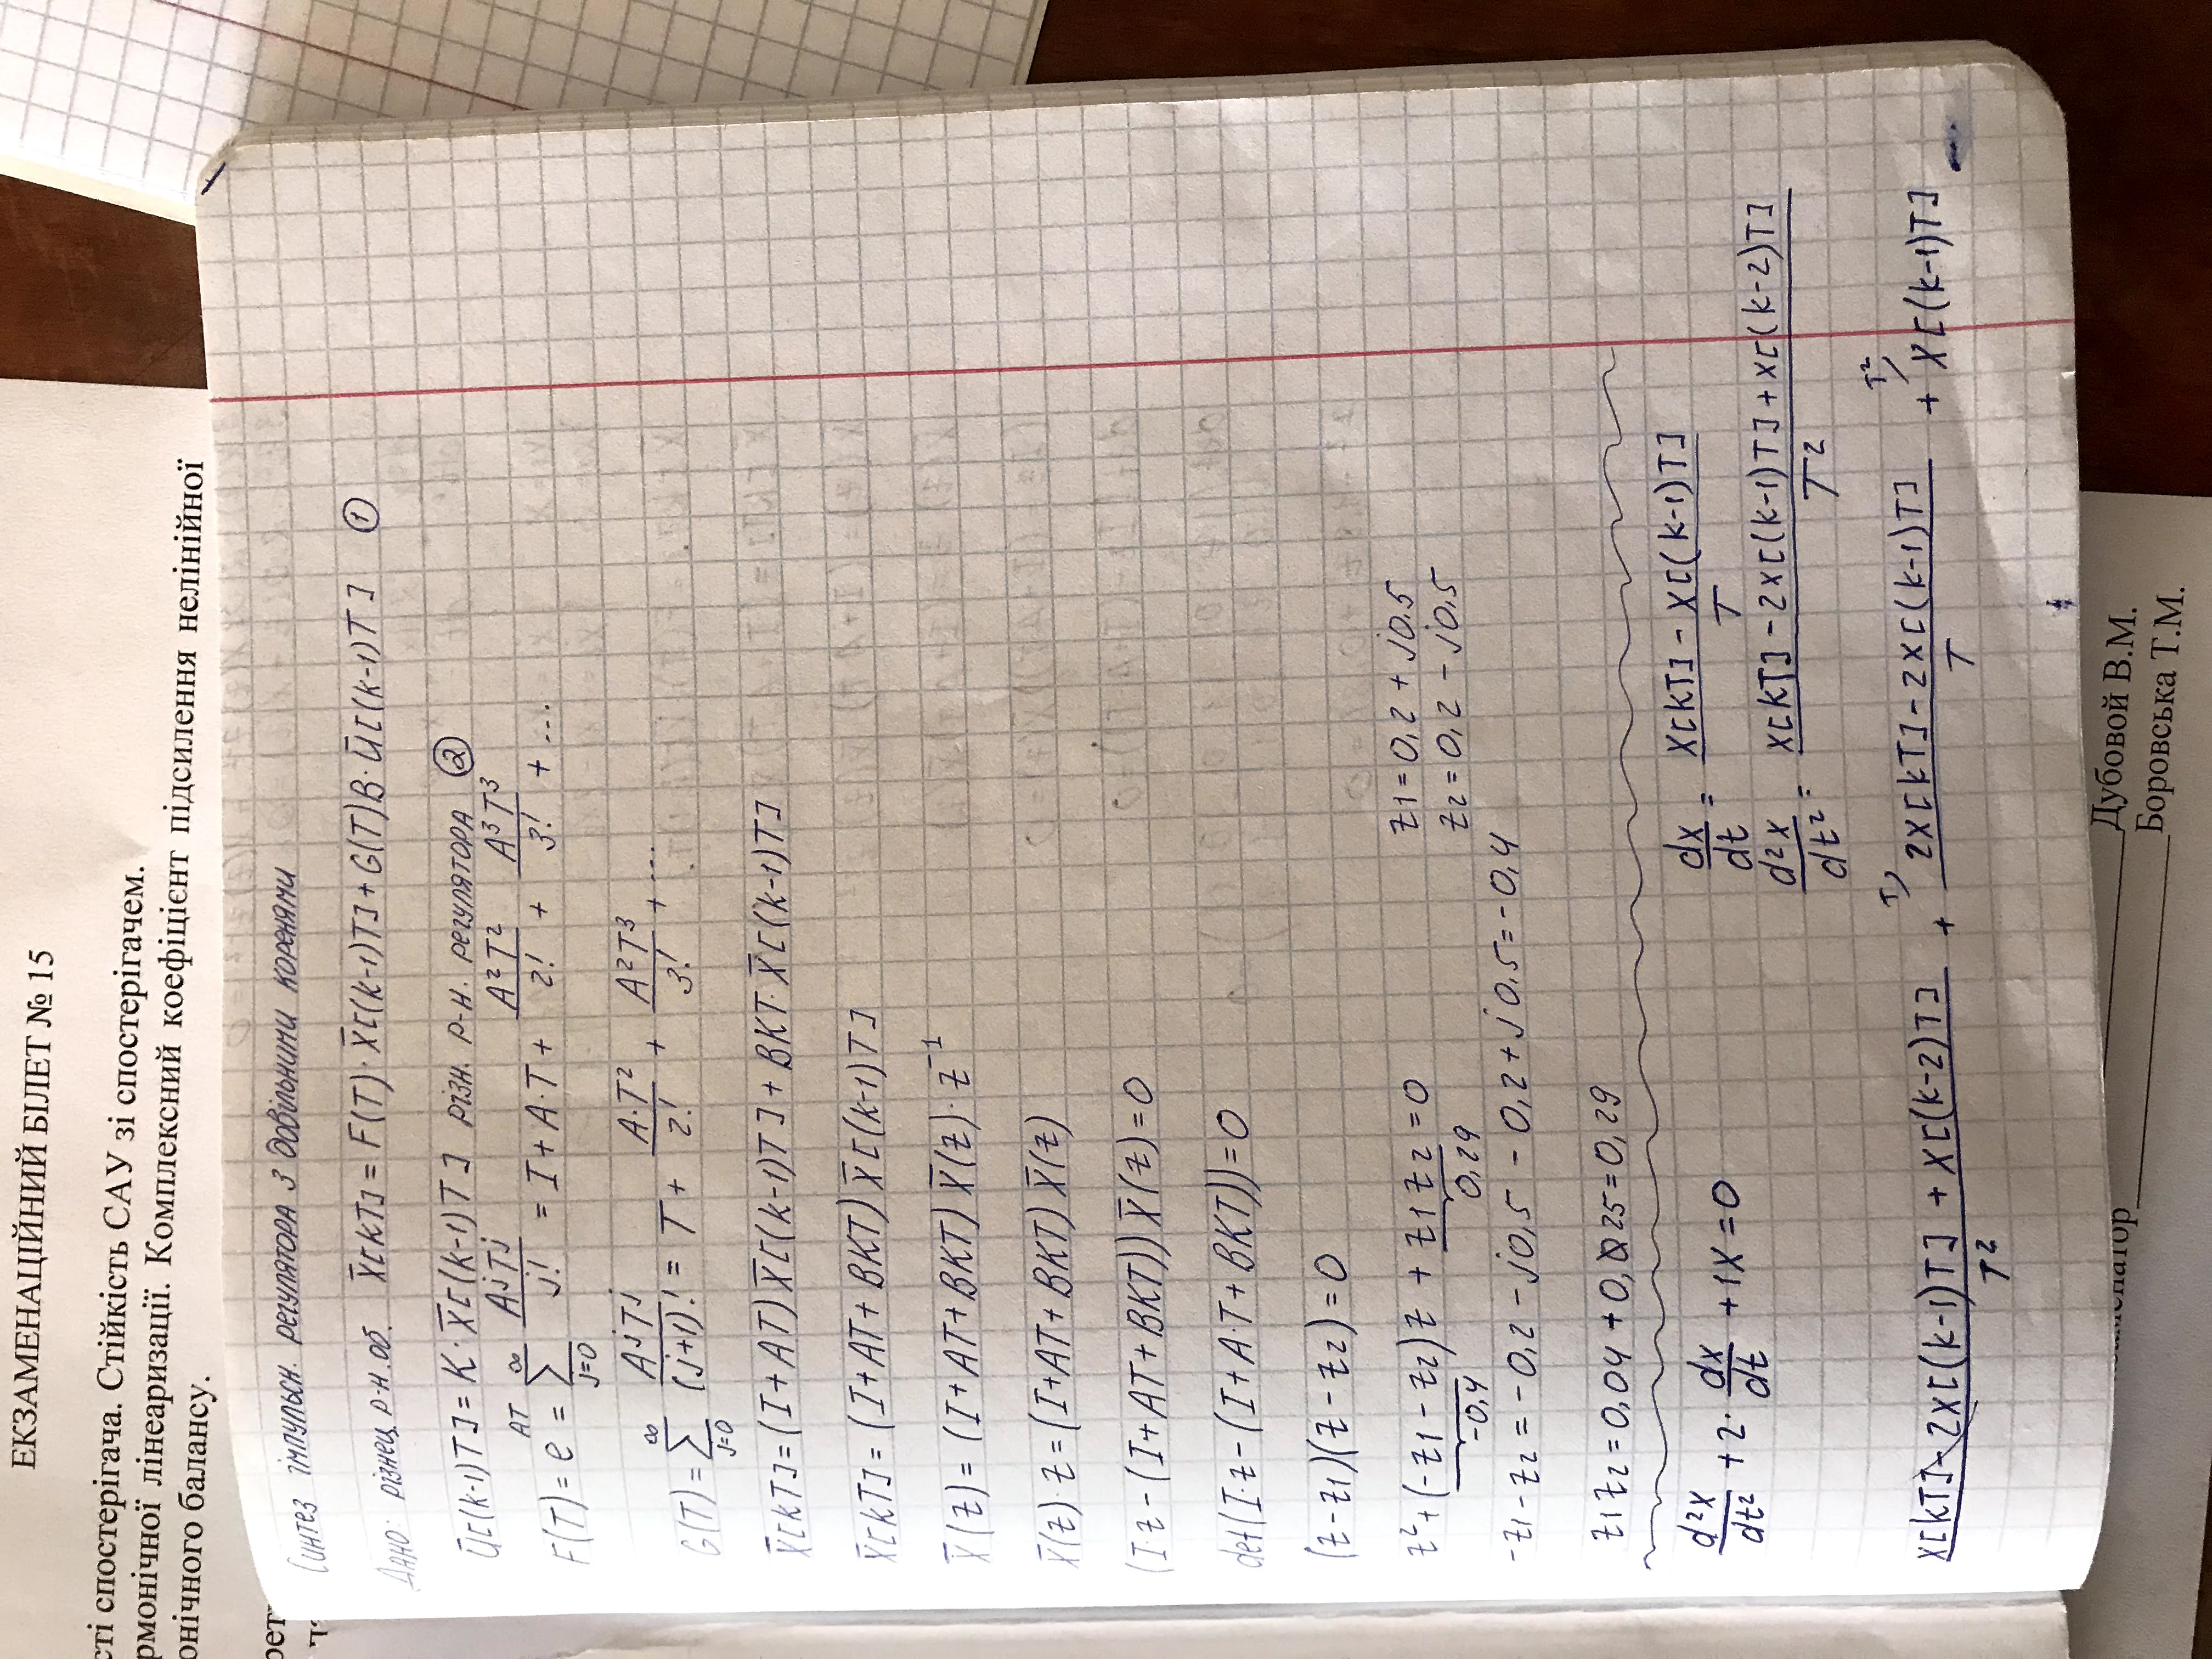 ЕКЗАМЕНАЦІЙНИЙ БІЛЕТ № 15
сті спостерігача. Стійкість САУ зі спостерігачем.
рмонічної лінеаризації. Комплексний коефіцієнт підсилення нелінійної
онічного балансу.
рет
Синтез імпульсн. регулятора з довільними коренями
Дано: різнец. р-н. об. X̅[kT] = F(T)·X̅[(k-1)T] + G(T)B·U̅[(k-1)T] ①
U̅[(k-1)T] = K·X̅[(k-1)T] різн. р-н. регулятора ②
F(T) = e^{AT} = ∑_{j=0}^{∞} A^jT^j/j! = I + A·T + A²T²/2! + A³T³/3! + ...
G(T) = ∑_{j=0}^{∞} A^jT^j/(j+1)! = T + A·T²/2! + A²T³/3! + ...
X̅[kT] = (I+AT)X̅[(k-1)T] + BKT·X̅[(k-1)T]
X̅[kT] = (I+AT+BKT)X̅[(k-1)T]
X̅(z) = (I+AT+BKT)X̅(z)·z⁻¹
X̅(z)·z = (I+AT+BKT)X̅(z)
(I·z-(I+AT+BKT))X̅(z) = 0
det(I·z-(I+A·T+BKT)) = 0
(z-z1)(z-z2) = 0
z² + (-z1-z2)z + z1z2 = 0 z1 = 0,2 + j0,5
-0,4 0,29 z2 = 0,2 - j0,5
-z1-z2 = -0,2-j0,5 - 0,2+j0,5 = -0,4
z1z2 = 0,04 + 0,25 = 0,29
d²x/dt² + 2·dx/dt + 1x = 0 dx/dt = (x[kT] - x[(k-1)T])/T
d²x/dt² = (x[kT] - 2x[(k-1)T] + x[(k-2)T])/T²
T) T²)
(x[kT] - 2x[(k-1)T] + x[(k-2)T])/T² + (2x[kT] - 2x[(k-1)T])/T + x[(k-1)T]
Дубовой В.М.
Боровська Т.М.